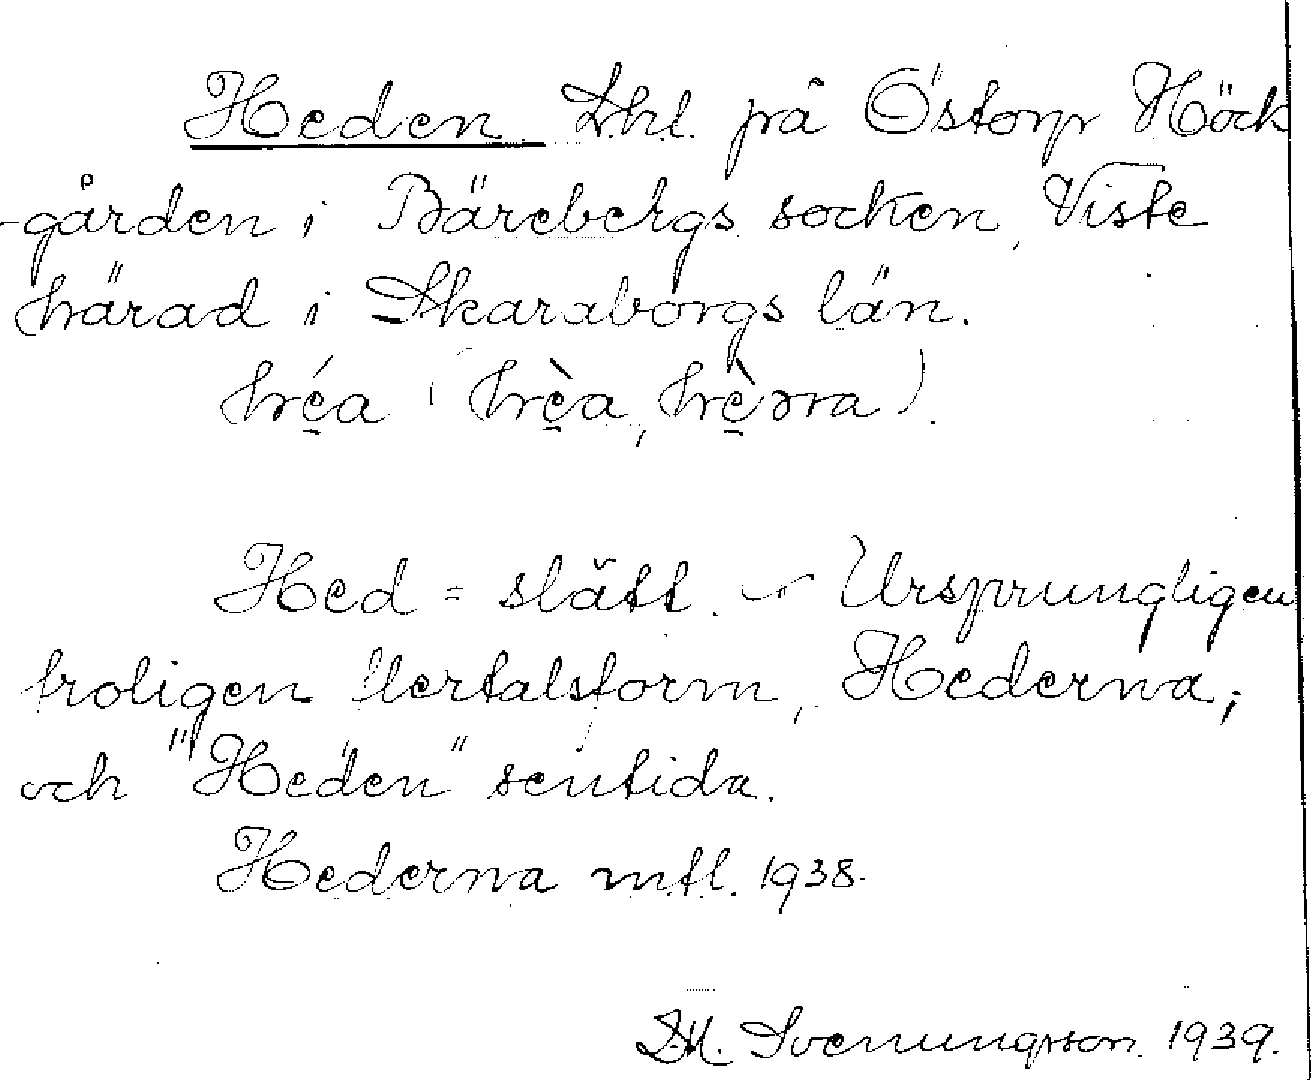 Heden. Lhl. på Östorp Höck
-gården i Bärebergs socken, Viste
härad i Skaraborgs län.
héa (hèa, hèɔra).

Hed = slätt. — Ursprungligen
troligen flertalsform, Hederna,
och "Heden" sentida.
Hederna mtl. 1938.
D.M. Svenungsson. 1939.